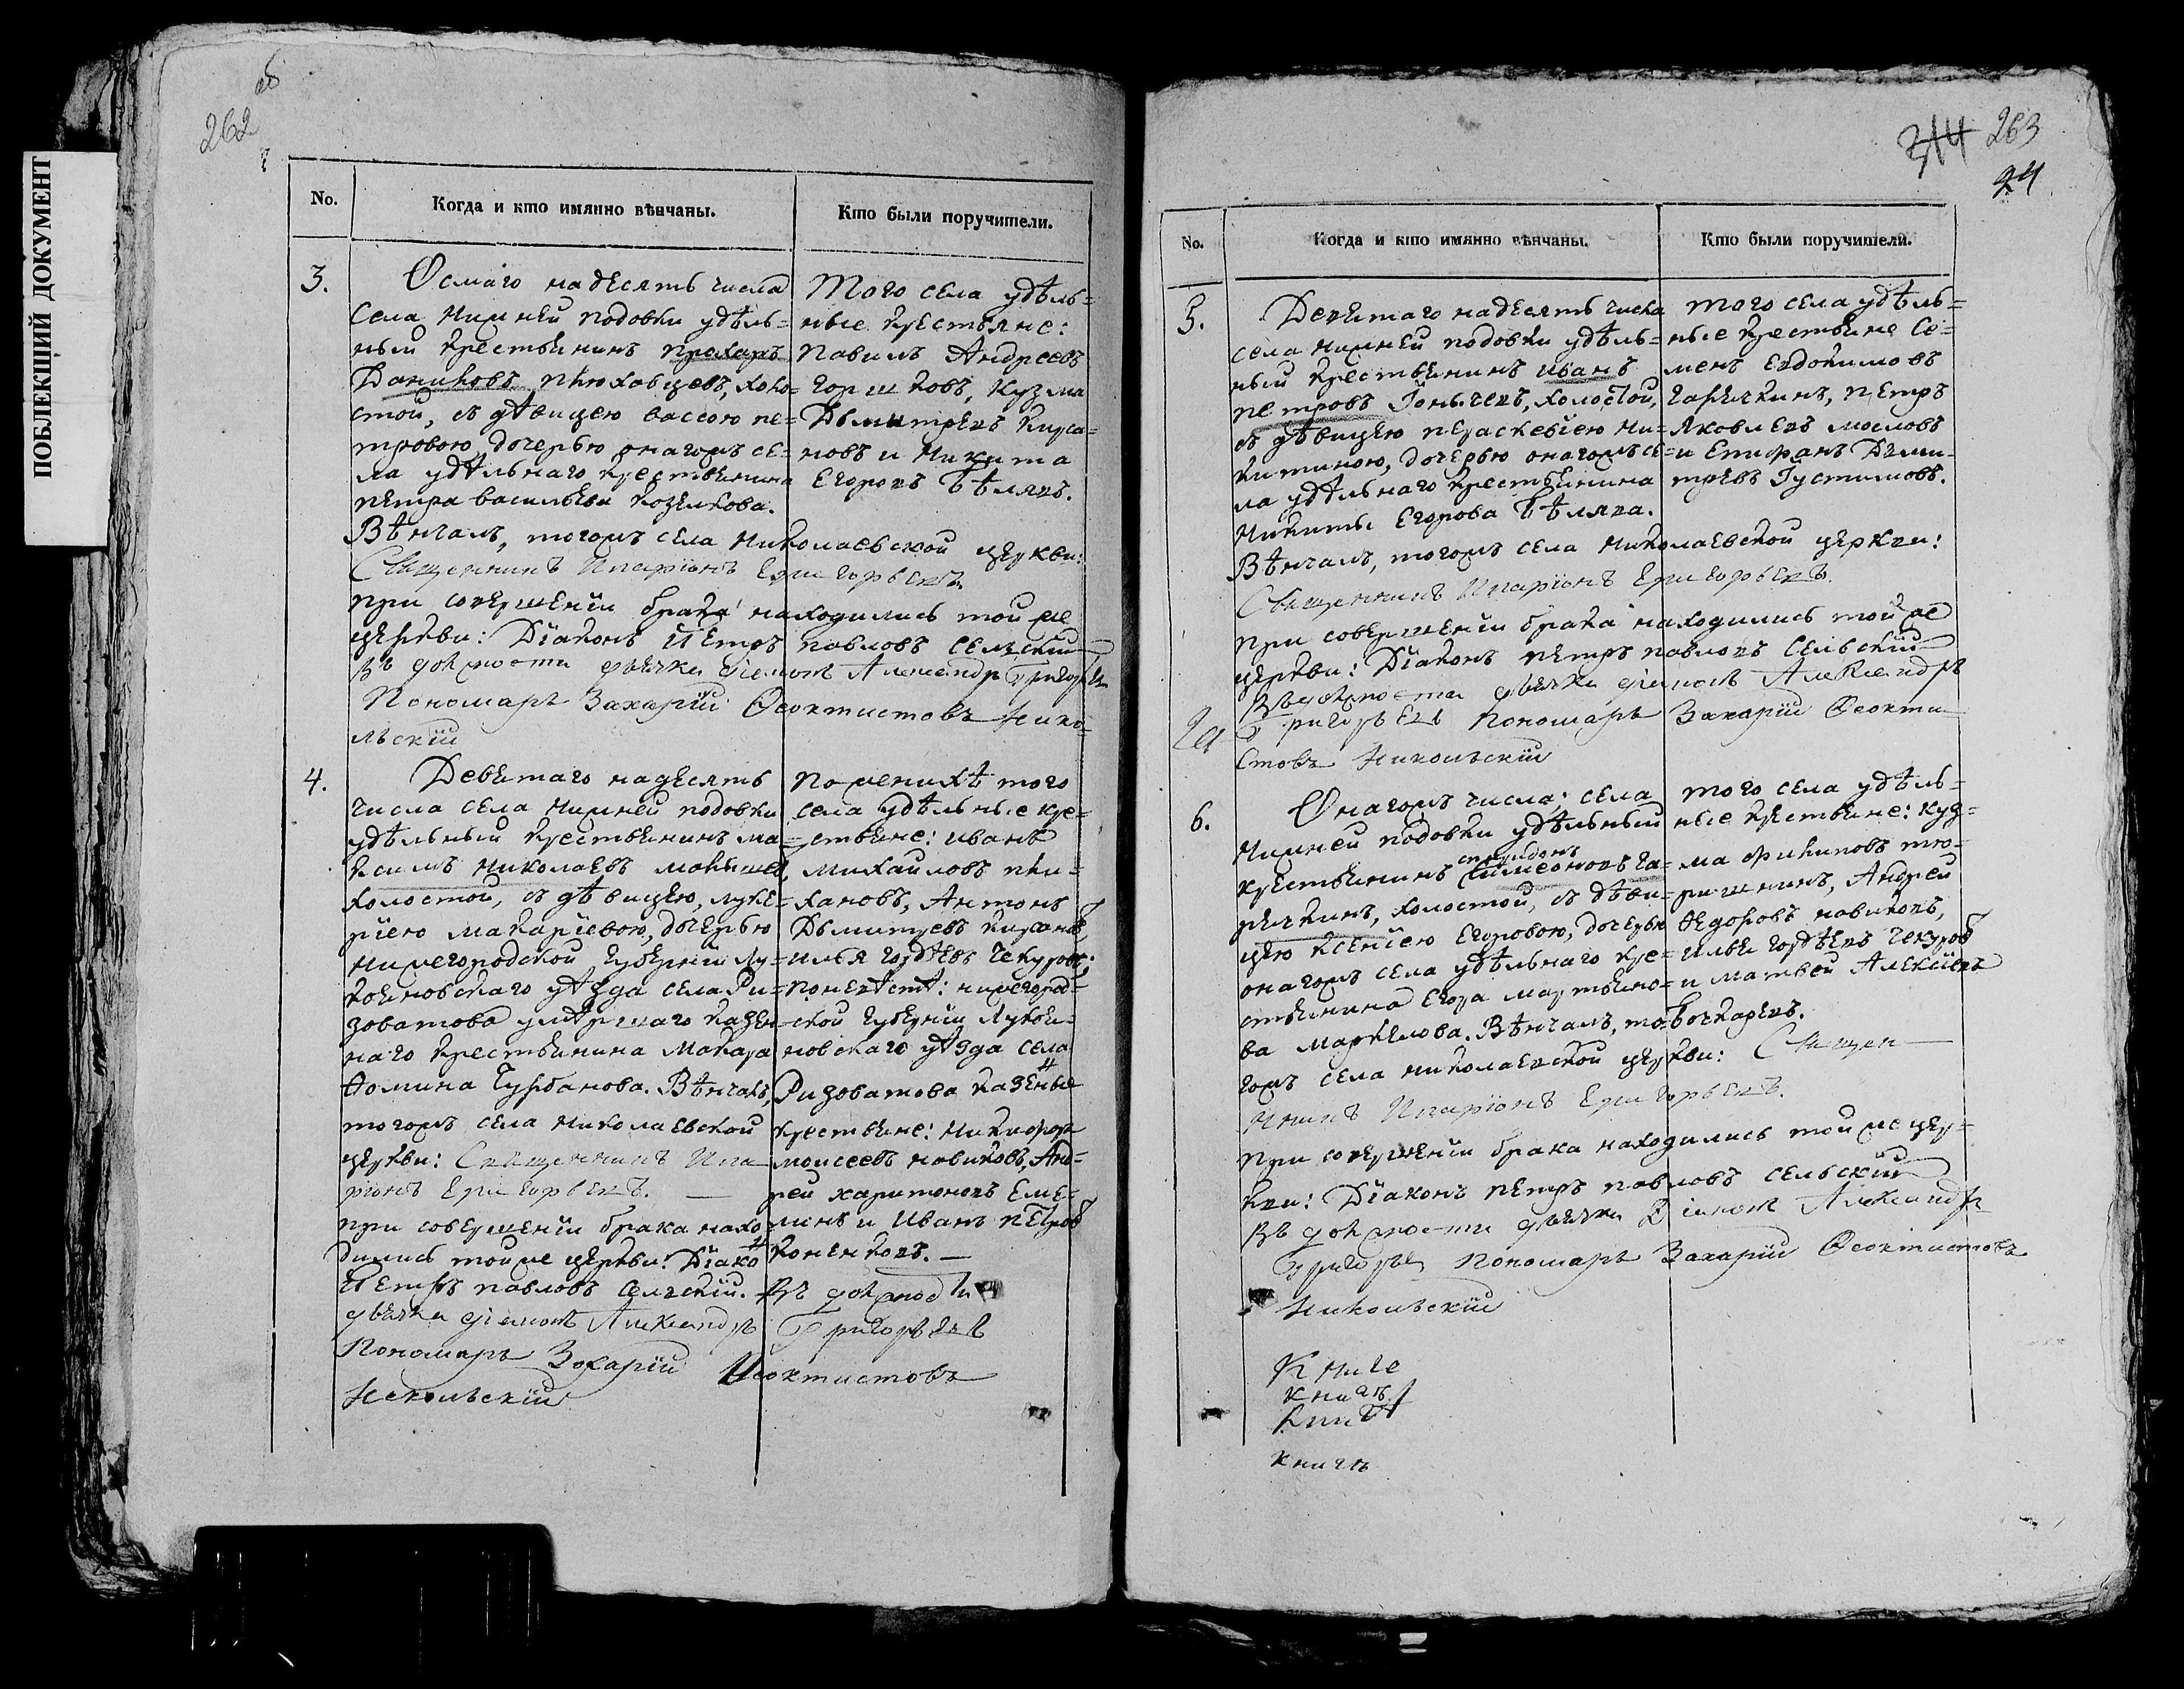 ПОБЛЕКШИЙ ДОКУМЕНТ
262 об
No.
Когда и кто имянно вѣнчаны.
Кто были поручители.
3.
Осмаго надесять числа
села Нижней подовки удѣль=
ный крестьянинъ Прохаръ
Даниловъ, холо=
стой, съ дѣвицею вассою пе=
тровою, дочерью онагожъ се=
ла удѣльнаго крестьянина
петра васильева козелкова.
Вѣнчалъ, тогожъ села Николаевской церкви:
Священникъ Иларіонъ Григорьевъ.
при совершеніи брака находились той же
церкви: Діаконъ Петръ павловъ Сельскій
въ должности дьячка діаконъ Александръ Григорьевъ
Пономарь Захарій Феоктистовъ Нико=
льскій
Того села удѣль=
ные крестьяне:
павилъ Андреевъ
Горшковъ, Кузма
Дьмитревъ Кирса=
новъ и Никита
Егоровъ Бѣлявъ.
4.
Девятаго надесять
числа села Нижней подовки
удѣльный крестьянинъ Ма=
ксимъ Николаевъ
холостой, съ дѣвицею, луке=
ріею макаріевою, дочерью
Нижегородской Губерніи Лу=
кояновскаго уѣзда села Ри=
зоватова умѣршаго казен=
наго крестьянина Макара
Фомина Курбанова. Вѣнчалъ,
тогожъ села Николаевской
церкви: Священникъ Ила
ріонъ Григорьевъ.
при совершеніи брака нахо
дились той же церкви: Діако
Петръ павловъ Сельскій. въ должности
дьячка діаконъ Александръ Григорьевъ
Пономарь Захарій Феоктистовъ
Никольскій
По женихѣ того
села удѣльные кре=
стьяне: иванъ
михаиловъ
Антонъ
Дьмитревъ кирсановъ,
илья гордѣевъ Чекуровъ;
по невѣстѣ: нижегород=
ской Губерніи Лукоя=
новскаго уѣзда села
Ризоватова казенные
крестьяне: Никифоръ
моисеевъ новиковъ, Анд=
рей харитоновъ Еме=
линъ и Иванъ петровъ
314 263
24
No.
Когда и кто имянно вѣнчаны.
Кто были поручители.
5.
Девятаго надесять числа
села Нижней подовки удѣль=
ный крестьянинъ иванъ
петровъ холостой,
съ дѣвицею параскевіею ни=
китиною, дочерью онагожъ се=
ла удѣльнаго крестьянина
Никиты Егорова Бѣлява.
Вѣнчалъ, тогожъ села Николаевской церкви:
Священникъ Иларіонъ Григорьевъ.
при совершеніи брака находились той же
церкви: Діаконъ петръ павловъ Сельскій
въ должности дьячка діаконъ Александръ
Григорьевъ Пономарь Захарій Феокти
стовъ Никольскій
того села удѣль=
ные крестьяне Се=
менъ Евдокимовъ
Гарячкинъ, петръ
Яковлевъ масловъ
и Епифанъ Дьми-
тревъ Густимовъ.
6.
Онагожъ числа, села
Нижней подовки удѣльный
крестьянинъ спиридонъ Симеоновъ га=
рячкинъ, холостой, съ дѣви=
цею ксеніею Егоровою, дочерью
онагожъ села удѣльнаго кре=
стьянина Егора мартьяно=
ва маркелова. Вѣнчалъ, то=
гожъ села николаевской церкви: Священ
никъ Иларіонъ Григорьевъ.
при совершеніи брака находились той же цер=
кви: Діаконъ петръ павловъ Сельскій
въ должности дьячка Діаконъ Александръ
Григорьевъ Пономарь Захарій Феоктистовъ
Никольскій
того села удѣль=
ные крестьяне: куз=
ма филиповъ тю=
ришнинъ, Андрей
Федоровъ новиковъ,
илья гордѣевъ Чекуровъ
и матвей Алексіевъ
Бочкаревъ.
Книге
книгъ
книгъ